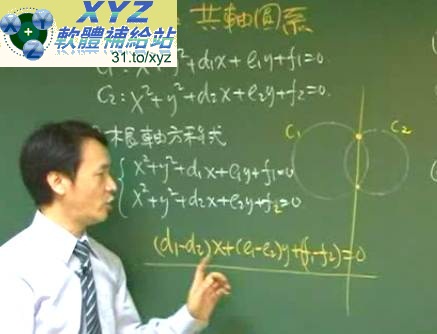 XYZ
軟體補給站
31.to/xyz
共軸圓系
C₁: x²+y²+d₁x+e₁y+f₁=0
C₂: x²+y²+d₂x+e₂y+f₂=0.
根軸方程式
x²+y²+d₁x+e₁y+f₁=0
x²+y²+d₂x+e₂y+f₂=0
(d₁-d₂)x+(e₁-e₂)y+(f₁-f₂)=0
C₁ C₂